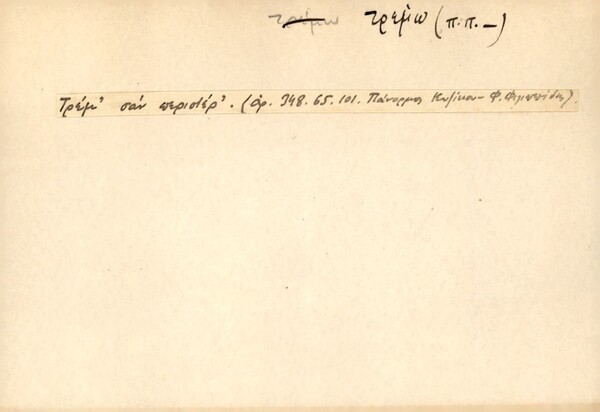 τρέμω τρεμω (π.π. –)
Τρέμ' σάν περιστέρ'. (ἀρ. 348. 65. 101. Πάνορμος Κυζίκου – Φ. Φιλιππίδης).